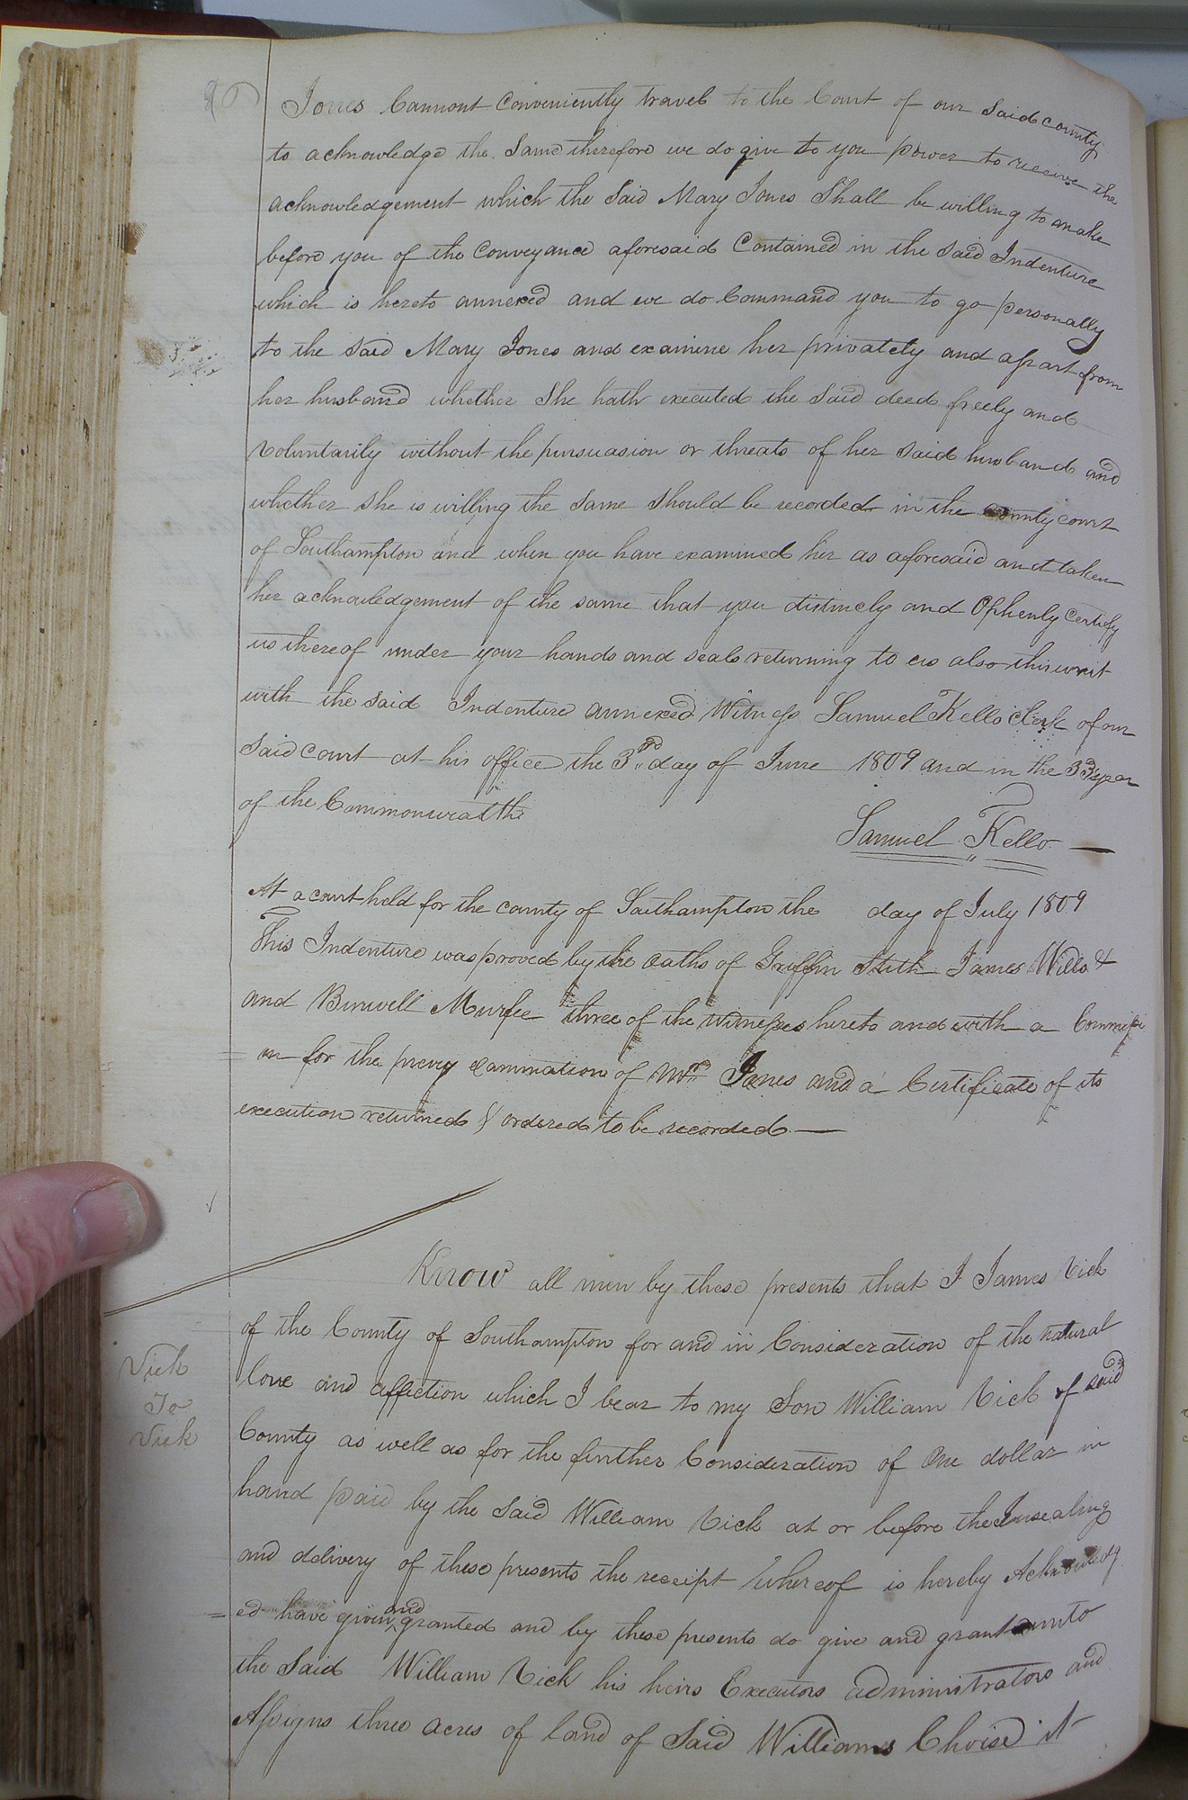 Jones Cannont Conveniently travel to the Court of our Said county
to acknowledge the Same therefore we do give to you power to receive the
acknowledgement which the Said Mary Jones Shall be willing to make
before you of the Conveyance aforesaid Contained in the Said Indenture
which is hereto annexed and we do Command you to go personally
to the Said Mary Jones and examine her privately and apart from
her husband whether She hath executed the Said deed freely and
Voluntarily without the pursuasion or threats of her Said husband and
whether she is willing the Same Should be recorded in the county court
of Southampton and when you have examined her as aforesaid and taken
her acknowledgement of the same that you distincly and Ophenly Certify
us thereof under your hands and seals returning to us also this writ
with the said Indenture annexed Witness Samuel Kello Clerk of our
Said court at his office the 3rd day of June 1809 and in the 33d year
of the Commonwealth
Samuel Kello
At a court held for the county of Southampton the day of July 1809
This Indenture was proved by the oaths of Griffin Stith James Wills &
and Burwell Murfee three of the witnesses hereto and with a Commissi
= on for the privy examination of Mrs Jones and a Certificate of its
execution returned & ordered to be recorded
Know all men by these presents that I James Vick
of the County of Southampton for and in Consideration of the natural
Vick
To
Vick
love and affection which I bear to my Son William Vick of said
County as well as for the further Consideration of One dollar in
hand paid by the Said William Vick at or before the Ensealing
and delivery of these presents the receipt whereof is hereby Acknowledg
= ed have given and granted and by these presents do give and grant unto
the Said William Vick his heirs Executors administrators and
Assigns three acres of land of Said Williams Choise it